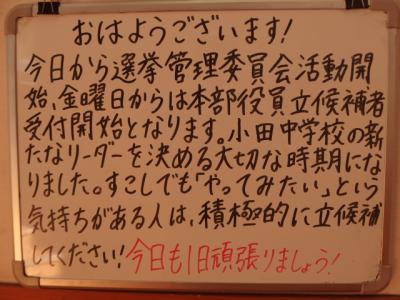 おはようございます!
今日から選挙管理委員会活動開
始、金曜日からは本部役員立候補者
受付開始となります。小田中学校の新
たなリーダーを決める大切な時期にな
りました。すこしでも「やってみたい」という
気持ちがある人は、積極的に立候補
してください!今日も1日頑張りましょう!